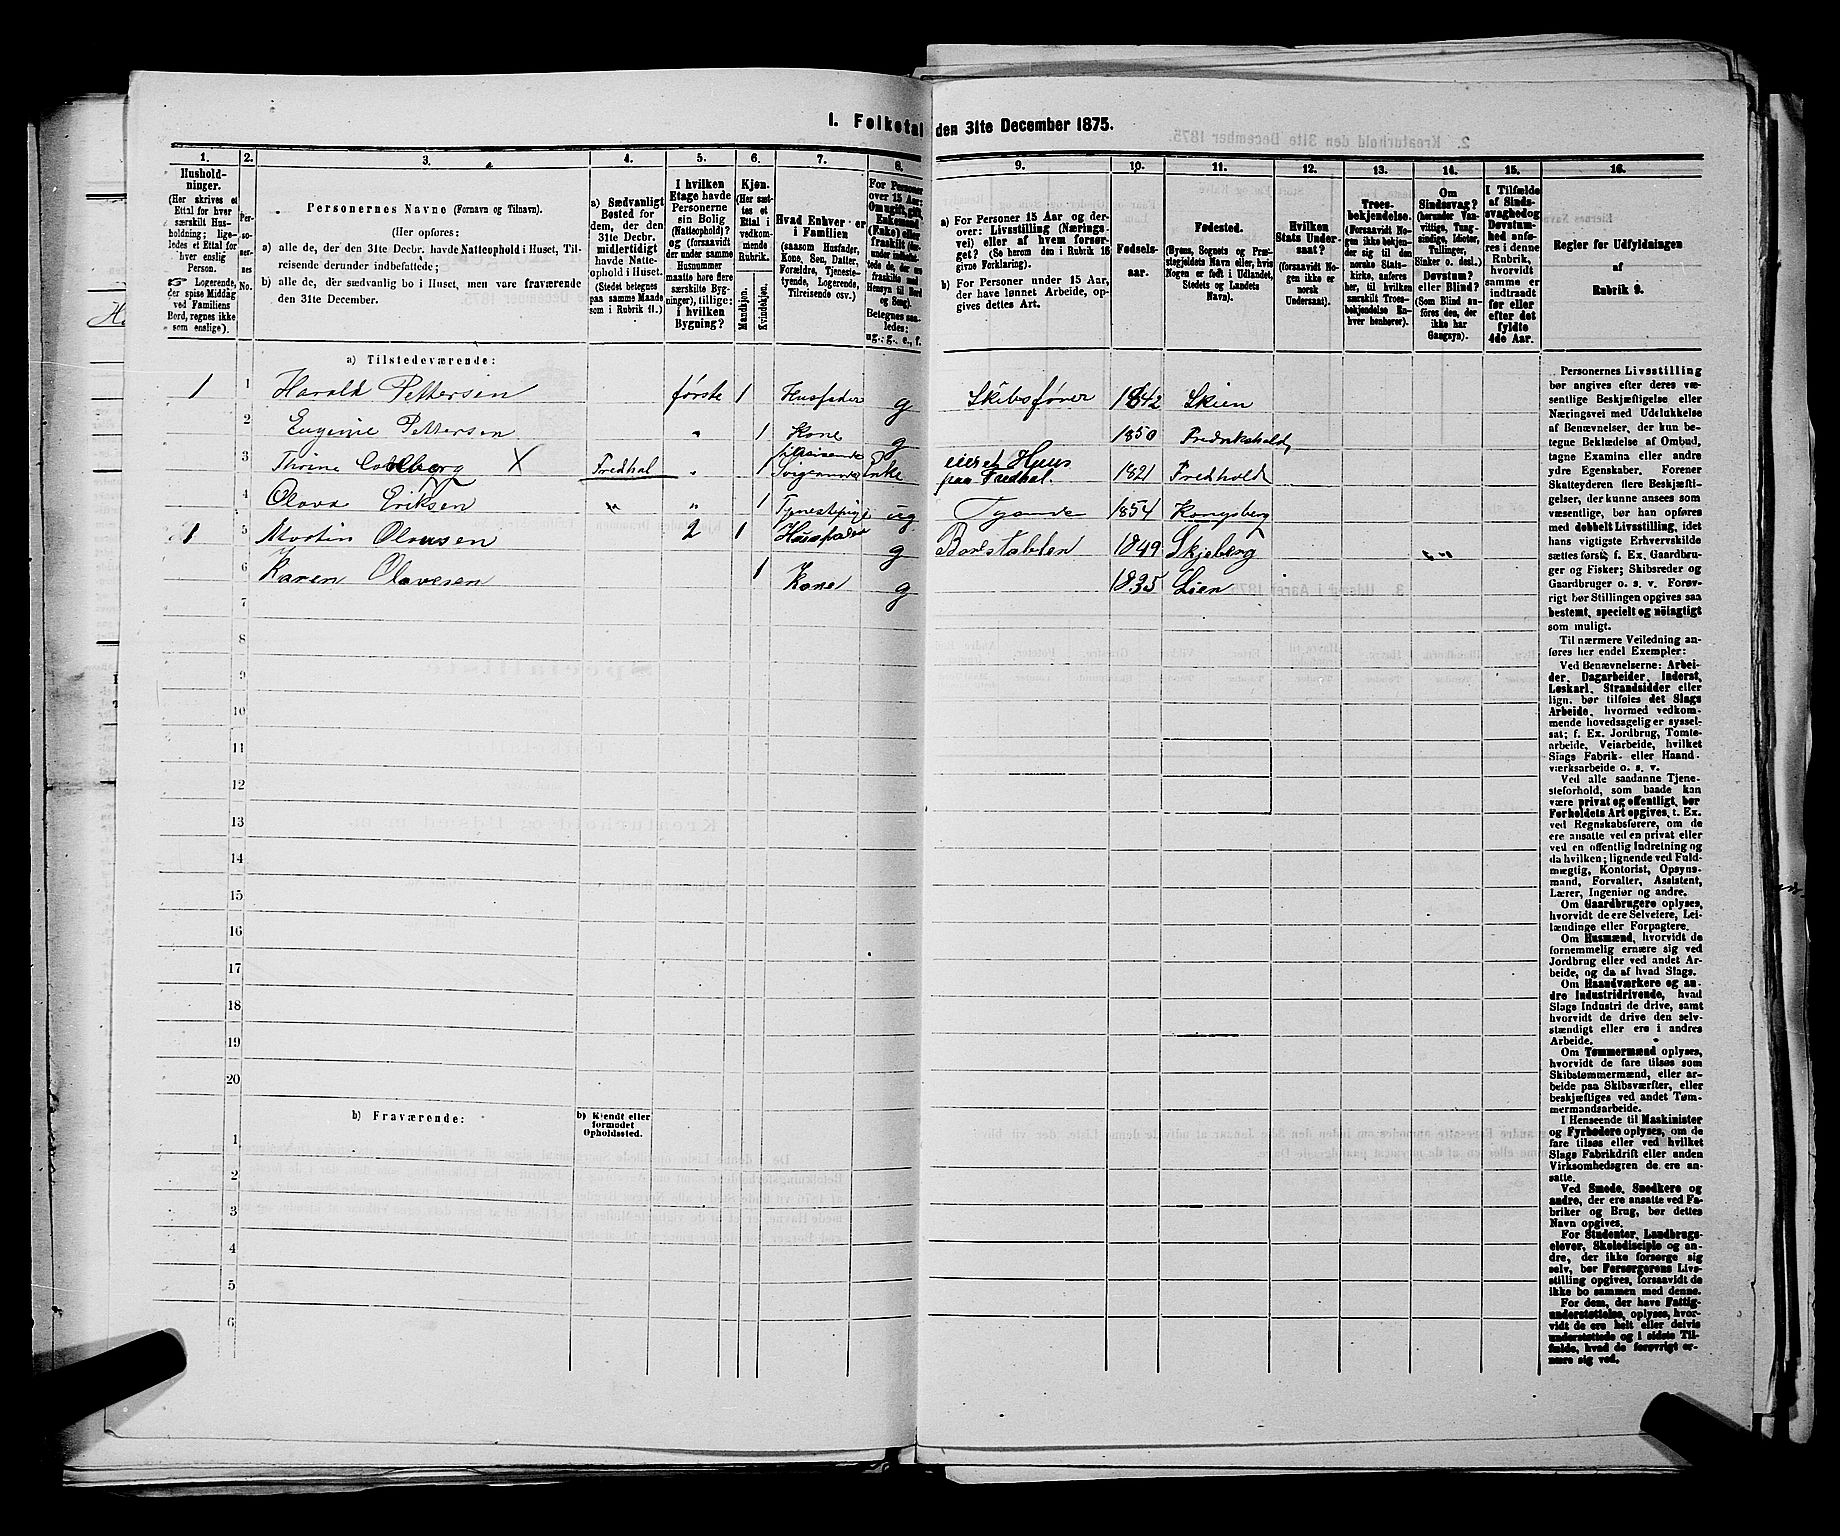 I. Folketal den 31te December 1875.
1. 2. 3. 4. 5. 6. 7. 8. 9. 10. 11. 12. 13. 14. 15. 16.
Husholdninger.
(Her skrives et Ettal for hver særskilt Husholdning; ligeledes et Ettal for hver enslig Person.
Logerende, der spise Middag ved Familiens Bord, regnes ikke som enslige).
Personernes No.
Personernes Navne (Fornavn og Tilnavn).
(Her opføres:
a) alle de, der den 31te Decbr. havde Natteophold i Huset, Tilreisende derunder indbefattede;
b) alle de, der sædvanlig bo i Huset, men vare fraværende den 31te December.
a) Sædvanligt Bosted for dem, der den 31te Decbr. midlertidigt havde Natteophold i Huset. (Stedet betegnes paa samme Maade som i Rubrik 11.)
I hvilken Etage havde Personerne sin Bolig (Natteophold)? og (forsaavidt der under samme Husnummer maatte høre flere særskilte Bygninger), tillige: i hvilken Bygning?
Kjøn. (Her sættes et Ettal i vedkommende Rubrik.
Mandkjøn. Kvindekjøn.
Hvad Enhver er i Familien (saasom Husfader, Kone, Søn, Datter, Forældre, Tjenestetyende, Logerende, Tilreisende osv.)
For Personer over 15 Aar: Om ugift, gift, Enkemand (Enke) eller fraskilt
Betegnes saaledes: ug., g., e., f.
a) For Personer 15 Aar og derover: Livsstilling (Næringsvei) eller af hvem forsørget? (Se herom den i Rubrik 16 givne Forklaring).
b) For Personer under 15 Aar, der have lønnet Arbeide, opgives dettes Art.
Fødselsaar.
Fødested.
(Byens, Sognets og Præstegjeldets Navn eller, hvis Nogen er født i Udlandet, Stedets og Landets Navn).
Hvilken Stats Undersaat?
(forsaavidt Nogen ikke er norsk Undersaat).
Troesbekjendelse.
(Forsaavidt Nogen ikke bekjender sig til den norske Statskirke, anføres her, til hvilken særskilt Troesbekjendelse Enhver henhører).
Om Sindssvag? (herunder Vanvittige, Tungsindige, Idioter, Tullinger, Sinker o. desl.) Døvstum? eller Blind? (Som Blind anføres den, der ikke har Gangsyn).
I Tilfælde af Sindssvaghed og Døvstumhed anføres i denne Rubrik, hvorvidt samme er indtraadt før eller efter det fyldte 4de Aar.
Regler for Udfyldningen af Rubrik 9.
a) Tilstedeværende:
1 1 Harald Pettersen første 1 Husfader g Skibsfører 1842 Skien
2 Eugenie Pettersen " 1 Kone g 1850 Fredrikshald
3 Thrine X Fredhal " 1 Enke eier et Huus paa Fredhal. 1821 Fredhald
4 Olava Eriksen " " 1 Tjenestepige ug 1854 Kongsberg
1 5 Martin Olausen 2 1 Husfader g 1849 Skjeberg
6 Karen Olavesen 1 Kone g 1835
7
8
9
10
11
12
13
14
15
16
17
18
19
20
b) Fraværende:
b) Kjendt eller formodet Opholdssted.
1
2
3
4
5
6
Personernes Livsstilling
bør angives efter deres væ-
sentlige Beskjæftigelse eller
Næringsvei med Udelukkelse
af Benævnelser, der kun be-
tegne Beklædelse af Ombud,
tagne Examina eller andre
ydre Egenskaber. Forener
Skatteyderen flere Beskjæfti-
gelser, der kunne ansees som
væsentlige, bør han opføres
med dobbelt Livsstilling, idet
hans vigtigste Erhvervskilde
sættes først; f. Ex. Gaardbru-
ger og Fisker; Skibsreder og
Gaardbruger o. s. v. Forøv-
rigt bør Stillingen opgives saa
bestemt, specielt og nøiagtigt
som muligt.
Til nærmere Veiledning an-
føres her endel Exempler:
Ved Benævnelserne: Arbei-
der, Dagarbeider, Inderst,
Løskarl, Strandsidder eller
lign. bør tilføies det Slags
Arbeide, hvormed vedkom-
mende hovedsagelig er syssel-
sat; f. Ex. Jordbrug, Tomte-
arbeide, Veiarbeide, hvilket
Slags Fabrik- eller Haand-
værksarbeide o. s. v.
Ved alle saadanne Tjene-
steforhold, som baade kan
være privat og offentligt, bør
Forholdets Art opgives, t. Ex.
ved Regnskabsførere, om de
ere ansatte ved en privat eller
ved en offentlig Indretning og
da hvilken; lignende ved Fuld-
mægtig, Kontorist, Opsyns-
mand, Forvalter, Assistent,
Lærer, Ingeniør og andre.
Om Gaardbrugere oplyses,
hvorvidt de ere Selveiere, Lei-
lændinge eller Forpagtere.
Om Husmænd, hvorvidt de
fornemmelig ernære sig ved
Jordbrug eller ved andet Ar-
beide, og da af hvad Slags.
Om Haandværkere og an-
dre Industridrivende, hvad
Slags Industri de drive, samt
hvorvidt de drive den selv-
stændigt eller ere i andres
Arbeide.
Om Tømmermænd oplyses,
hvorvidt de fare tilsøs som
Skibstømmermænd, eller ar-
beide paa Skibsværfter, eller
beskjæftiges ved andet Tøm-
mermandsarbeide.
I Henseende til Maskinister
og Fyrbødere oplyses, om de
fare tilsøs eller ved hvilket
Slags Fabrikdrift eller anden
Virksomhedsgren de ere an-
satte.
Ved Smede, Snedkere og
andre, der ere ansatte ved Fa-
briker og Brug, bør dettes
Navn opgives.
For Studenter, Landbrugs-
elever, Skoledisciple og an-
dre, der ikke forsørge sig
selv, bør Forsørgerens Livs-
stilling opgives, forsaavidt de
ikke bo sammen med denne.
For dem, der have Fattig-
understøttelse, oplyses, hvor-
vidt de ere helt eller delvis
understøttede og i sidste Til-
fælde, hvad de forøvrigt er-
nære sig ved.